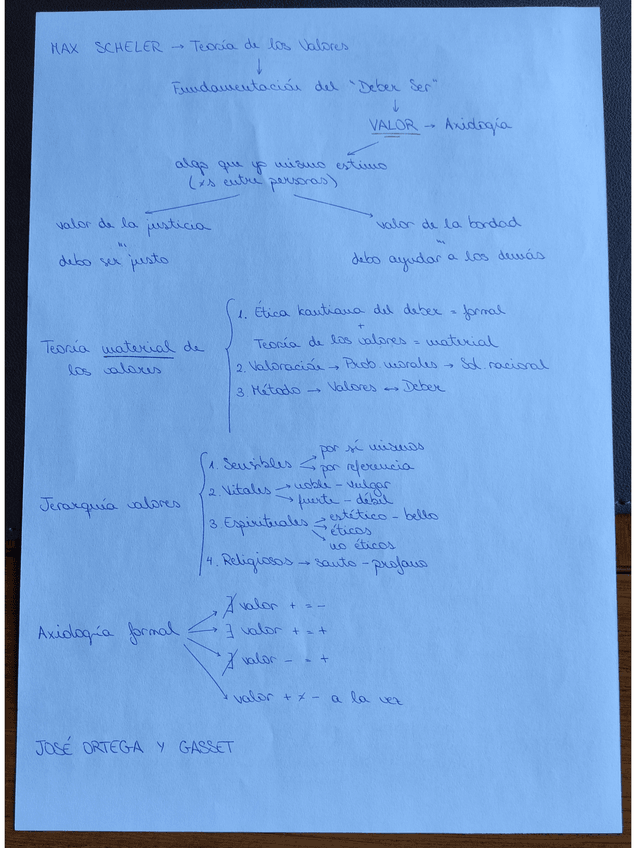 MAX SCHELER → Teoría de los Valores
↓
Fundamentación del "Deber Ser"
↓
VALOR → Axiología
algo que yo mismo estimo
(xs entre personas)
valor de la justicia
valor de la bondad
debo ser justo
debo ayudar a los demás
Teoría material de
los valores
1. Ética kantiana del deber = formal
+
Teoría de los valores = material
2. Valoración → Prob. morales → Sol. racional
3. Método → Valores ↔ Deber
Jerarquía valores
1. Sensibles
por sí mismos
por referencia
2. Vitales → noble - vulgar
→ fuerte - débil
3. Espirituales → estético - bello
→ éticos
no éticos
4. Religiosos → santo - profano
Axiología formal
∄ valor + = -
∃ valor + = +
∄ valor - = +
valor + x - a la vez
JOSÉ ORTEGA Y GASSET